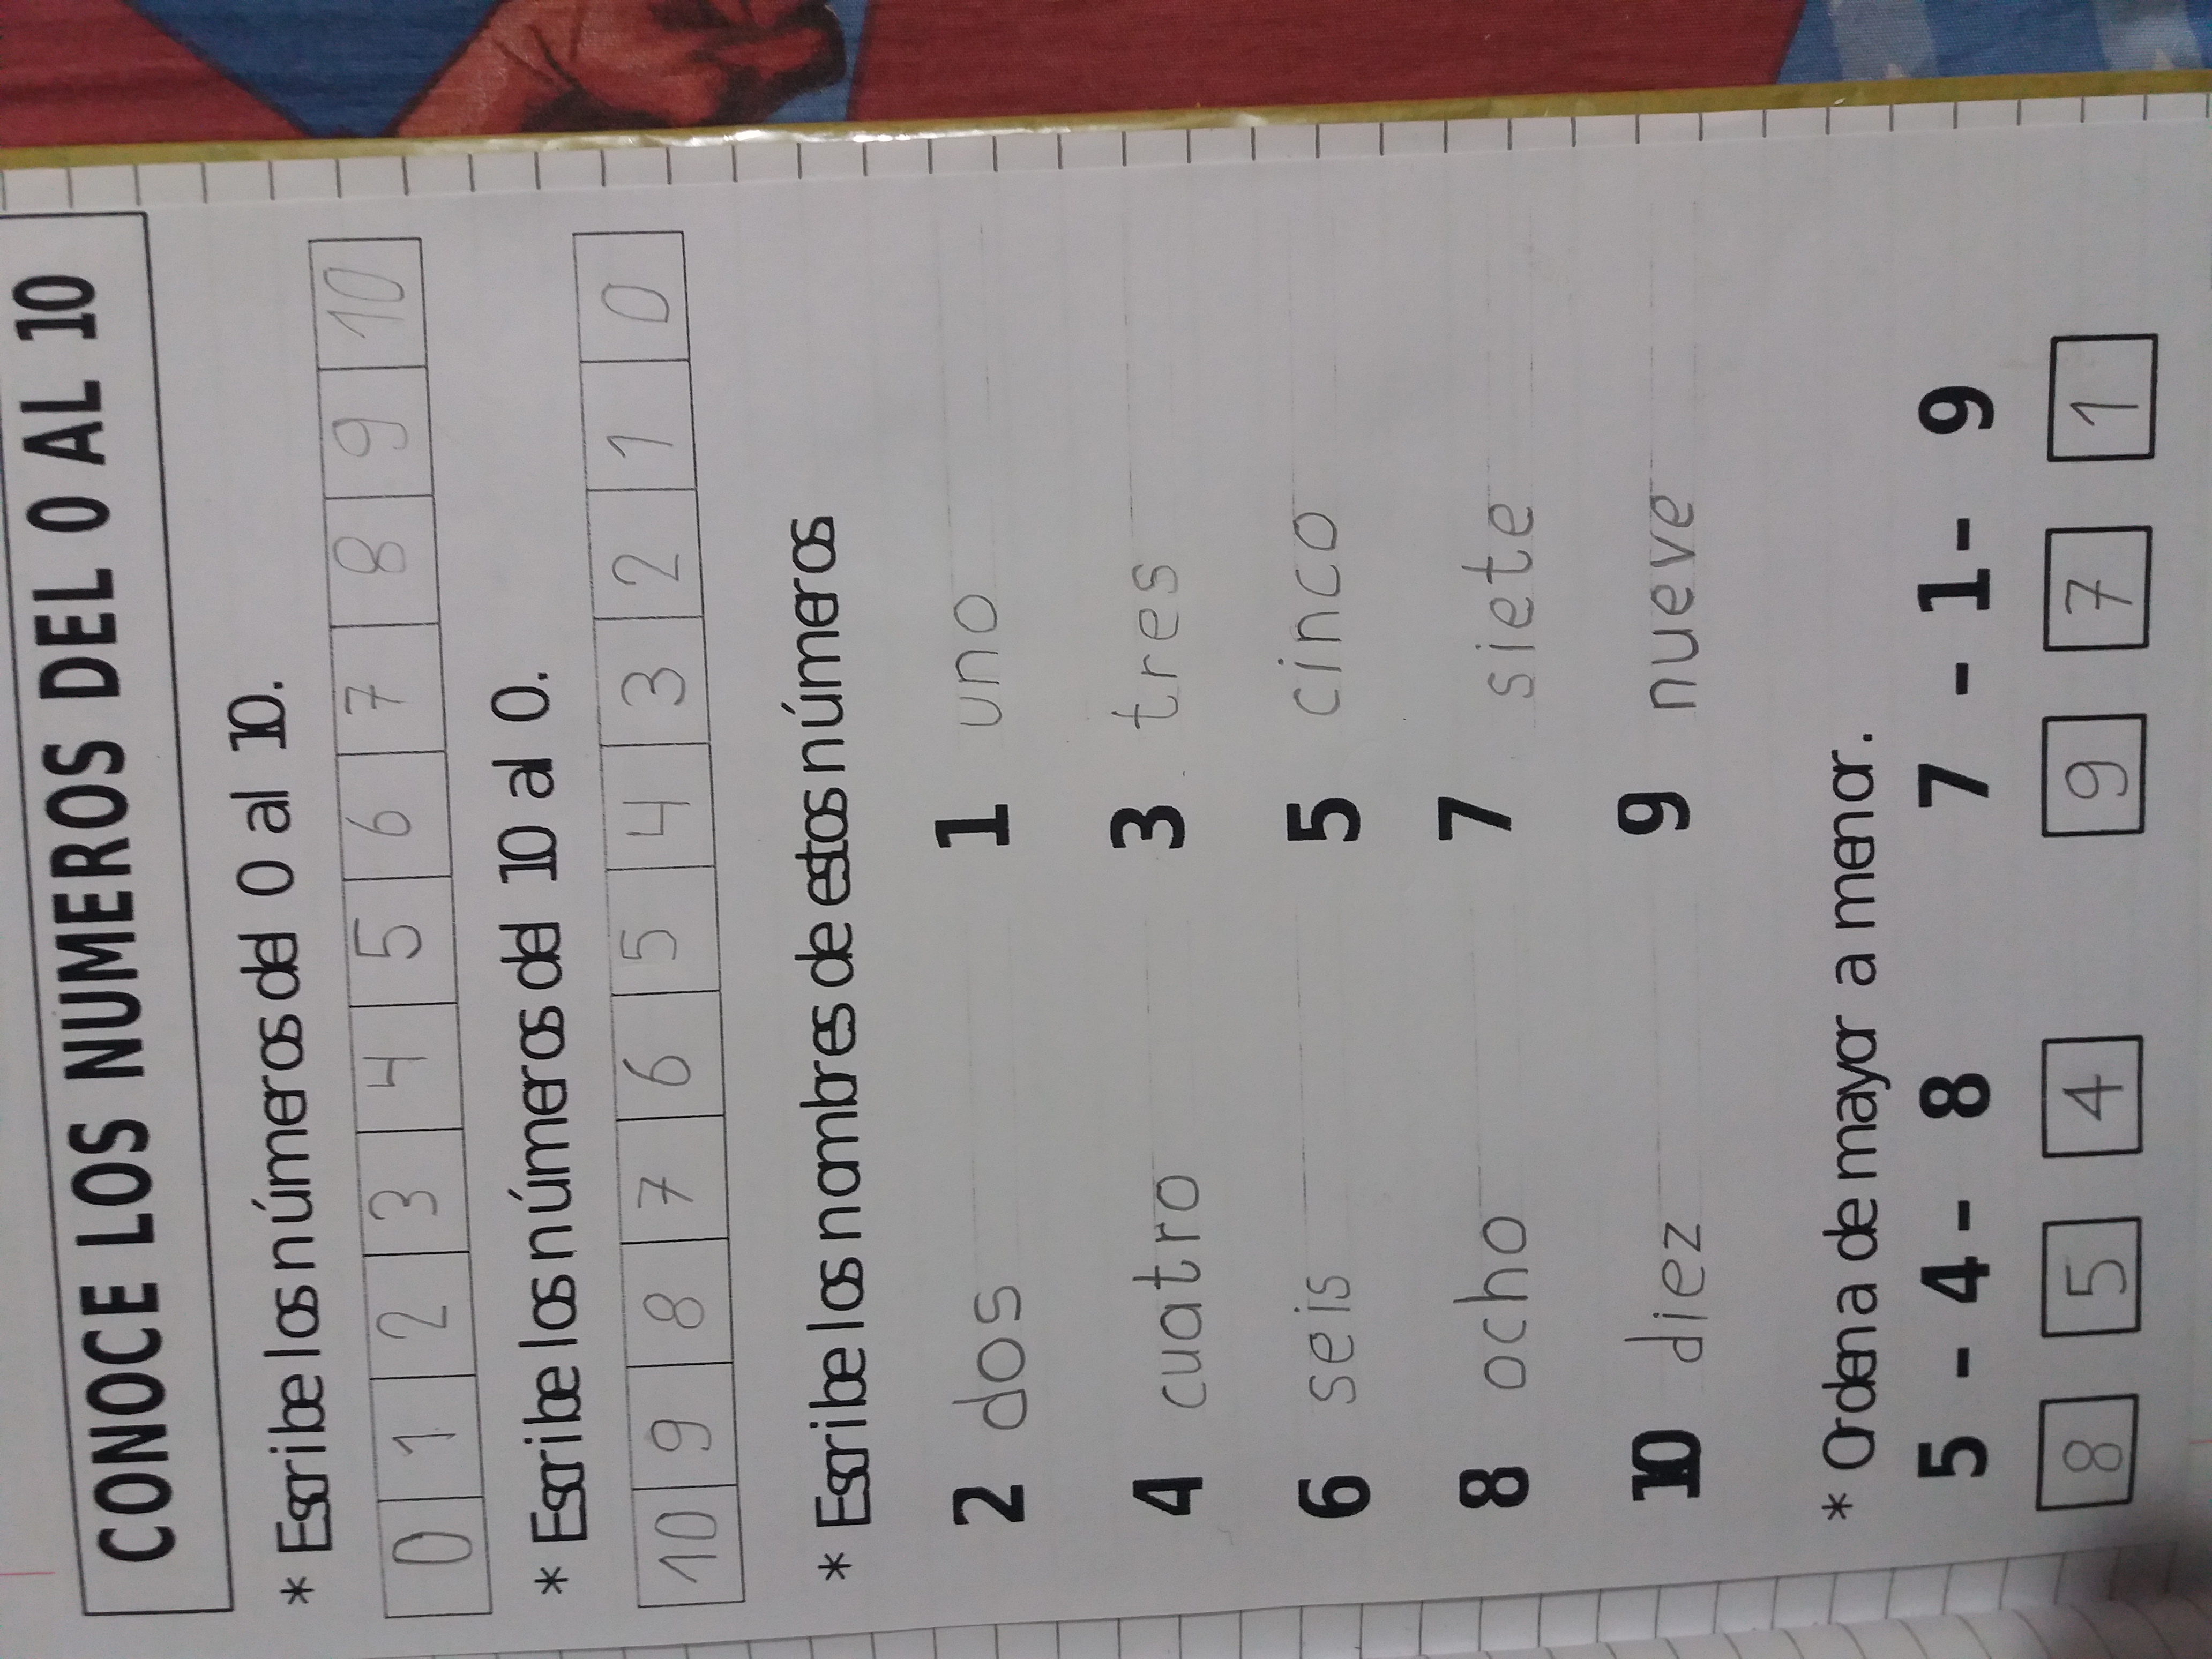 CONOCE LOS NUMEROS DEL 0 AL 10
* Escribe los números del 0 al 10.
0 1 2 3 4 5 6 7 8 9 10
* Escribe los números del 10 al 0.
10 9 8 7 6 5 4 3 2 1 0
* Escribe los nombres de estos números
2 dos 1 uno
4 cuatro 3 tres
6 seis 5 cinco
8 ocho 7 siete
10 diez 9 nueve
* Ordena de mayor a menor.
5 - 4 - 8 7 - 1 - 9
8 5 4 9 7 1